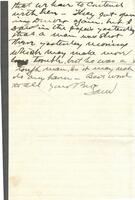 that we have to contend
with here - They got
ing Dinner again, but I
saw in the paper yesterday
that a man was shot
there yesterday morning
which may make more
trouth, but he was a
tough man, so it may not
do any harm - Best word
to all Your Bro
Sam